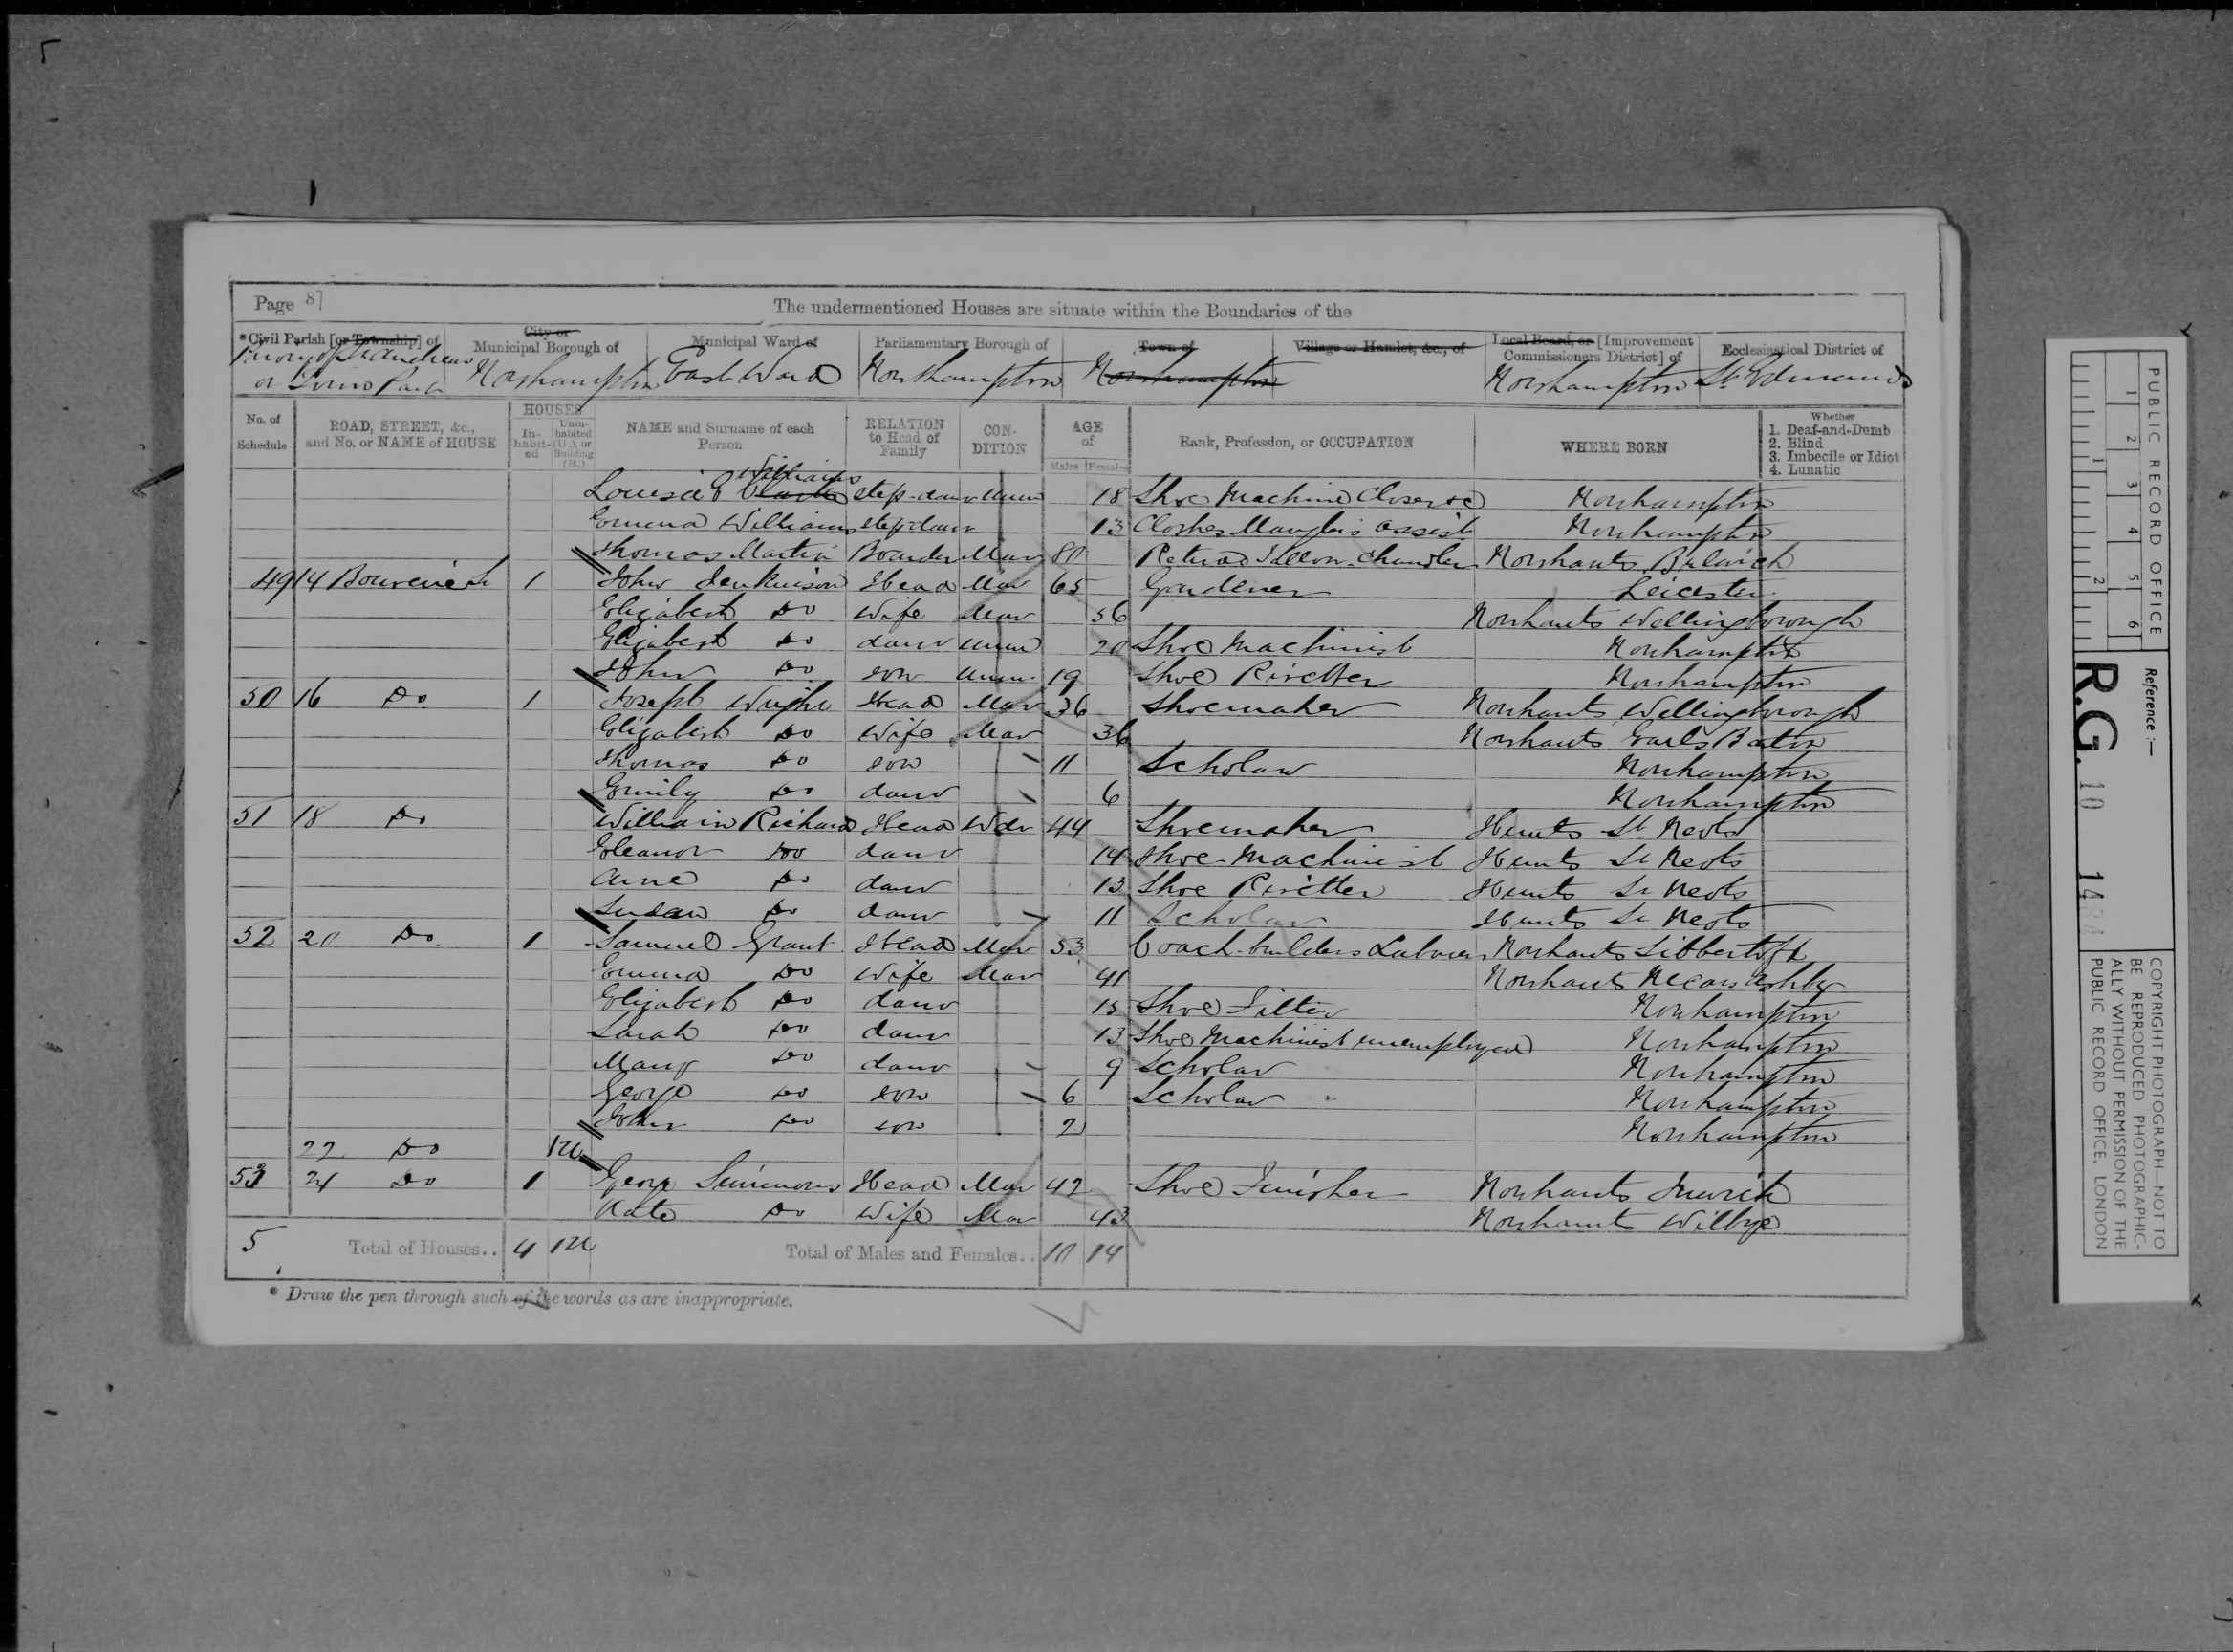 Page 87
The undermentioned Houses are situate within the Boundaries of the
*Civil Parish [or Township] of
City or Municipal Borough of
Municipal Ward of
Parliamentary Borough of
Town of
Village or Hamlet, &c., of
Local Board, or [Improvement Commissioners District] of
Ecclesiastical District of
Priory of St Andrews Northampton East Ward Northampton Northampton Northampton St Edmunds
No. of Schedule
ROAD, STREET, &c., and No. or NAME of HOUSE
HOUSES
In-habit-ed
Unin-habited (U.), or Building (B.)
NAME and Surname of each Person
RELATION to Head of Family
CON-DITION
AGE of
Males Females
Rank, Profession, or OCCUPATION
WHERE BORN
Whether
1. Deaf-and-Dumb
2. Blind
3. Imbecile or Idiot
4. Lunatic
Williams
Louisa step-daur Unm 18 Shoe Machine Closer &c Northampton
Emma Williams step-daur 13 Clothes Manglers assist Northampton
Thomas Martin Boarder Mar 80 Retired Tallow-Chandler Northants Bulwick
49 14 Bouverie St 1 John Jenkinson Head Mar 65 Gardener Leicester
Elizabeth Do Wife Mar 56 Northants Wellingborough
Elizabeth Do daur Unm 20 Shoe Machinist Northampton
John Do son Unm. 19 Shoe Rivetter Northampton
50 16 Do 1 Joseph Wright Head Mar 36 Shoemaker Northants Wellingborough
Elizabeth Do Wife Mar 36 Northants Earls Barton
Thomas Do son 11 Scholar Northampton
Emily Do daur 6 Northampton
51 18 Do William Richard Head Wdr 44 Shoemaker Hunts St Neots
Eleanor Do daur 14 Shoe-Machinist Hunts St Neots
Anne Do daur 13 Shoe Rivetter Hunts St Neots
Susan Do daur 11 Scholar Hunts St Neots
52 20 Do 1 Samuel Grant Head Mar 53 Coach-builders Labourer Northants Sibbertoft
Emma Do Wife Mar 41 Northants Mears Ashby
Elizabeth Do daur 15 Shoe Fitter Northampton
Sarah Do daur 13 Shoe Machinist unemployed Northampton
Mary Do daur 9 Scholar Northampton
George Do son 6 Scholar Northampton
John Do son 2 Northampton
22 Do 1U
53 24 Do 1 George Simmons Head Mar 42 Shoe Finisher Northants
Kate Do Wife Mar 43 Northants Wilbye
5 Total of Houses.. 4 1U Total of Males and Females.. 10 14
* Draw the pen through such of the words as are inappropriate.
PUBLIC RECORD OFFICE
1 2 3 4 5 6
1 2
Reference :—
R.G. 10 14
COPYRIGHT PHOTOGRAPH—NOT TO
BE REPRODUCED PHOTOGRAPHIC-
ALLY WITHOUT PERMISSION OF THE
PUBLIC RECORD OFFICE, LONDON